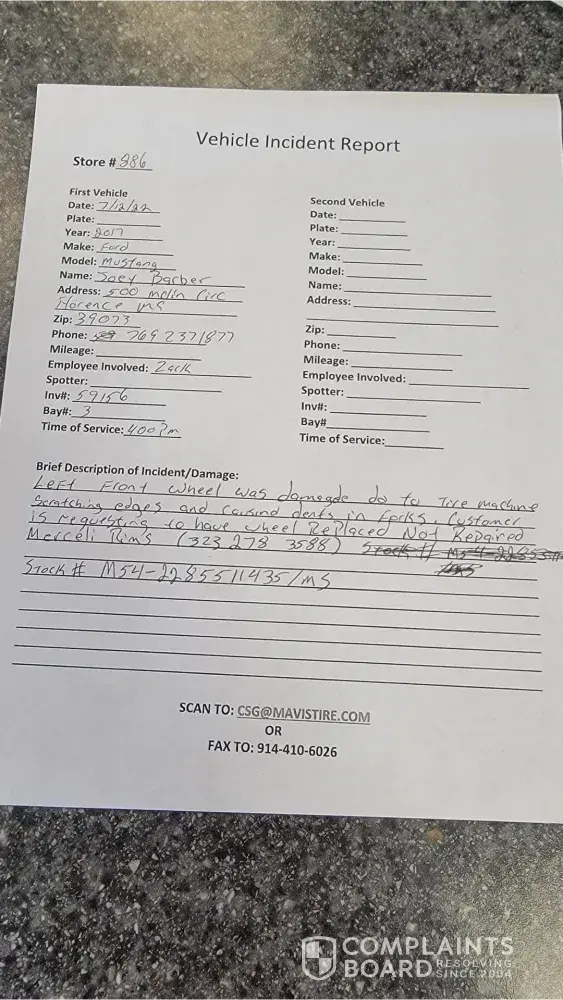 Vehicle Incident Report
Store # 986
First Vehicle
Date: 7/12/22
Plate:
Year: 2017
Make: Ford
Model: Mustang
Name: Joey Barber
Address: 500 molin Circ
Florence ms
Zip: 39073
Phone: 769 2371877
Mileage:
Employee Involved: Zack
Spotter:
Inv#: 59156
Bay#: 3
Time of Service: 400 Pm
Second Vehicle
Date:
Plate:
Year:
Make:
Model:
Name:
Address:
Zip:
Phone:
Mileage:
Employee Involved:
Spotter:
Inv#:
Bay#
Time of Service:
Brief Description of Incident/Damage:
Left Front wheel was damagde do to Tire machine
Scratching edges and causind dents in forks. Customer
is requesting to have wheel Replaced Not Repaired
Merceli Rims (323 278 3588) Stock #
Stock # M54-2285511435/MS
SCAN TO: CSG@MAVISTIRE.COM
OR
FAX TO: 914-410-6026
COMPLAINTS
BOARD RESOLVING
SINCE 2004